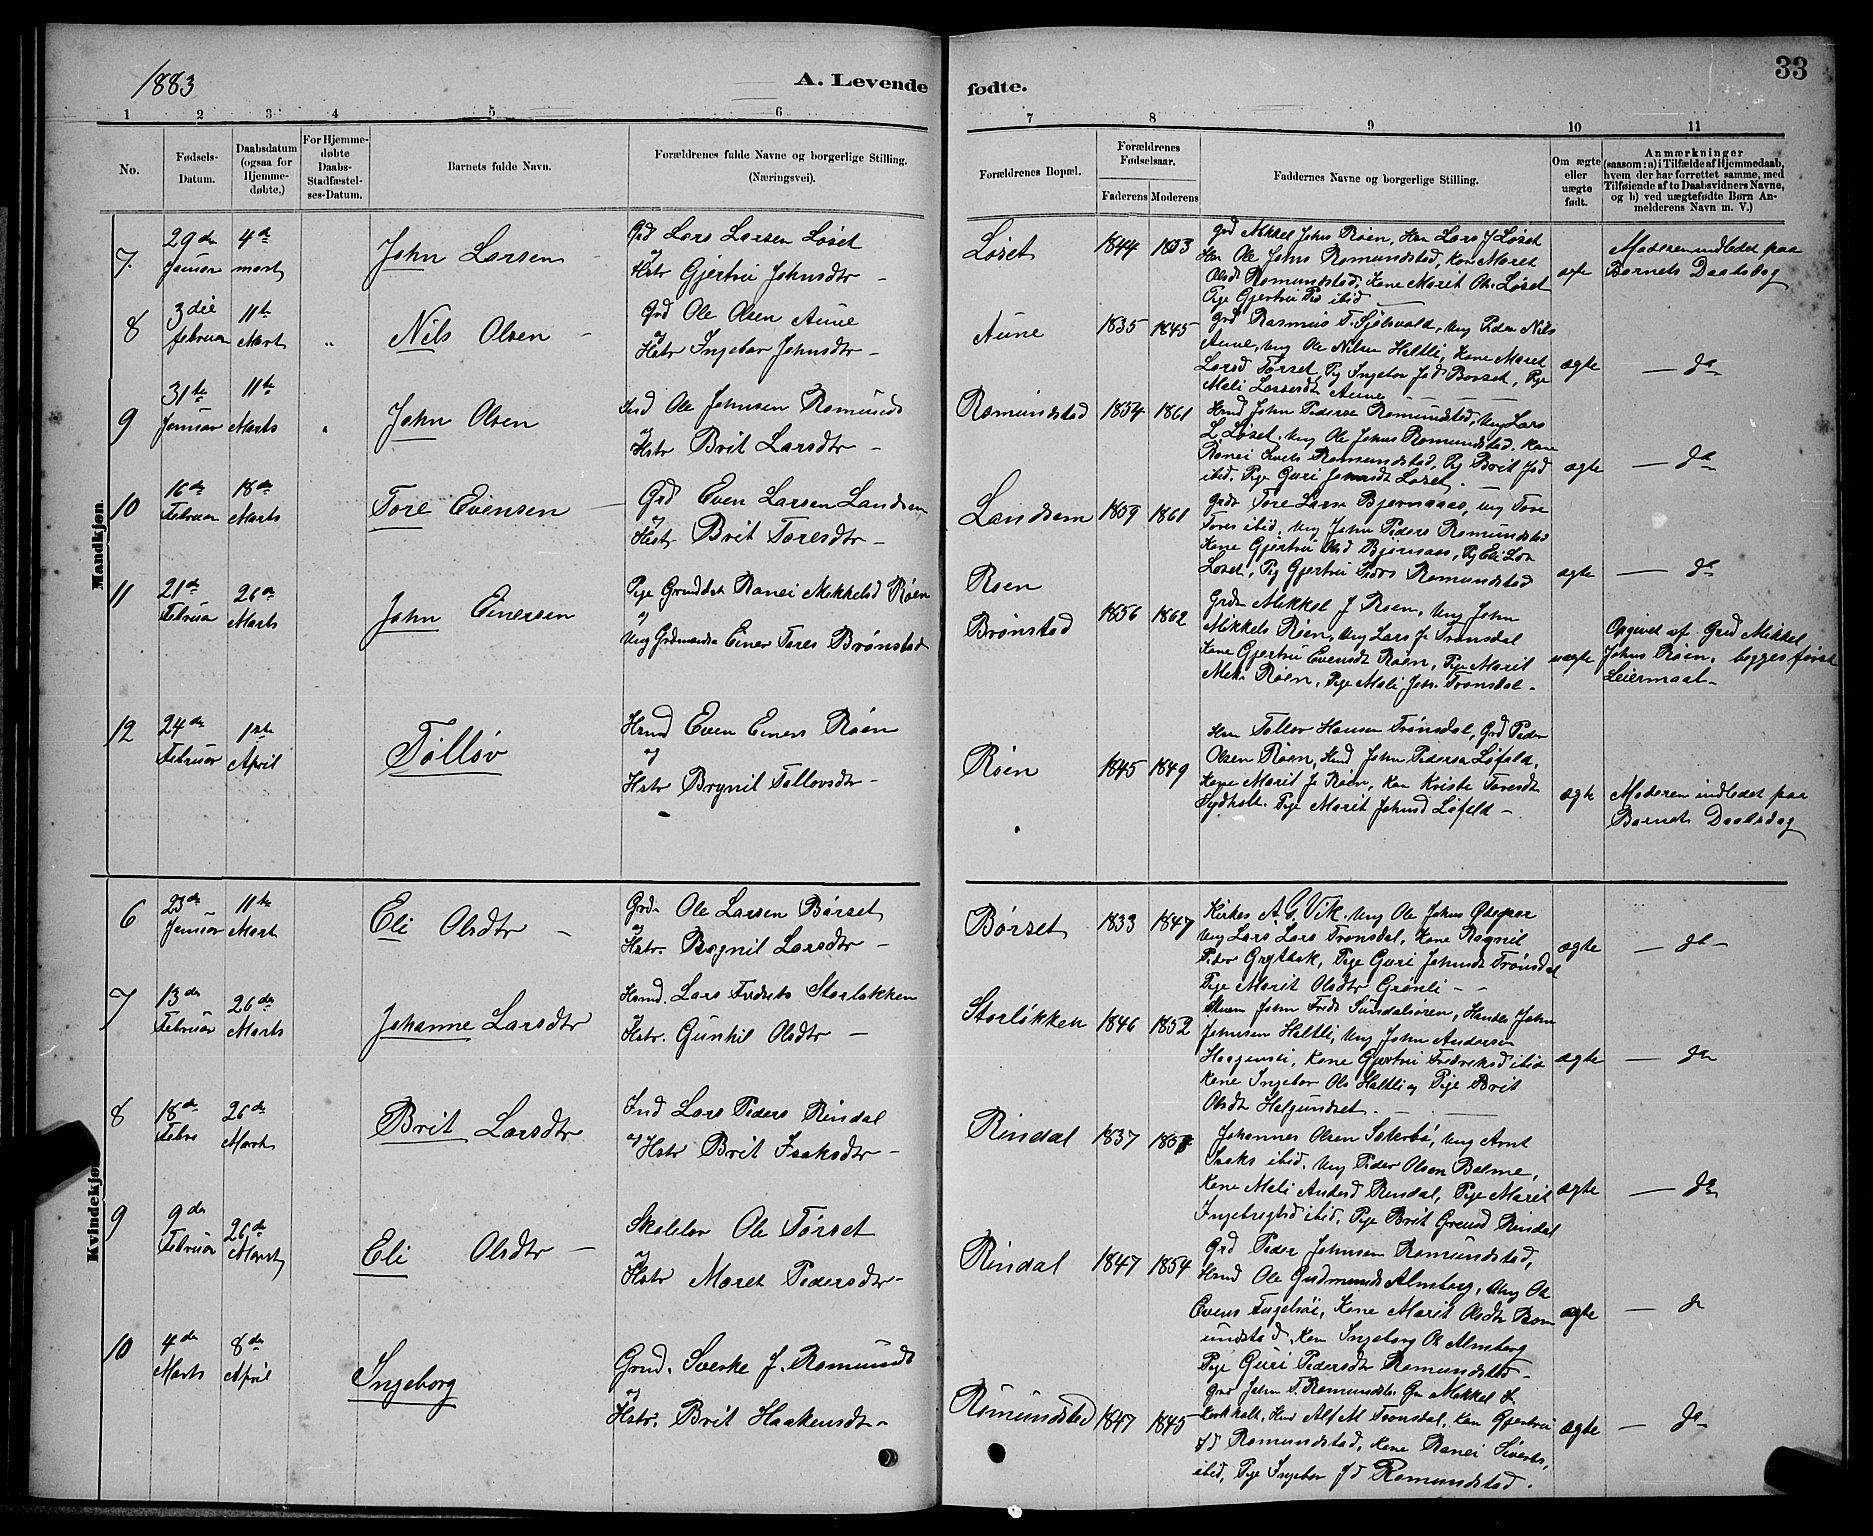 1883
A. Levende fødte.
33
1 2 3 4 5 6 7 8 9 10 11
No.
Fødsels-Datum.
Daabsdatum (ogsaa for Hjemme-døbte.)
For Hjemme-døbte Daabs-Stadfæstel-ses-Datum.
Barnets fulde Navn.
Forældrenes fulde Navne og borgerlige Stilling. (Næringsvei).
Forældrenes Bopæl.
Forældrenes Fødselsaar.
Faderens Moderens
Faddernes Navne og borgerlige Stilling.
Om ægte eller uægte født.
Anmærkninger (saasom: a) i Tilfælde af Hjemmedaab, hvem der har forrettet samme, med Tilføiende af to Daabsvidners Navne, og b) ved uægtefødte Børn Anmelderens Navn m. V.)
Mandkjøn.
7. 29de Januar 4de mart John Larsen
Grd Lars Larsen Løset
og Hstr Gjertru Johnsdtr
Løset 1844
Grd Mikkel Johns Røen, Lars J Løset
Ole Johns Romundstad, Kone Maret
Olsd Romundstad, Kone Marit Ols. Løset
Pige Gjertru Pd ibid
ægte
Moderen indledet paa
Barnets Daabsdag
8 3die februar 11te Mart " Nils Olsen
Grd Ole Olsen Aune
og Hstr Ingebor Johnsdtr
Aune 1835 1845
Grd Rasmus T. Sjølsvold, Ung Peder Nils
Aune, Ung Ole Nilsen Haltli, Kone Maret
Larsd Tørset, Pg Ingebor Jsd Børset, Pge
Mali Larsensdt Aune
ægte
— do
9 31te Januar 11te Marts " John Olsen
Ind Ole Johnsen Romunds
og Hstr Brit Larsdtr
Romundstad 1854 1861
Hmd John Pederse Romundstad, Ung Lars
L Løset, Ung Ole Johns Romundstad, Kone
Ranei Romundstad, Pg Brit Jsd
ibid. Pige Guri Johnsdt Løset.
ægte
— do
10 16de Februar 18de Marts Tore Evensen
Grd Even Larsen Landsem
og Hstr Brit Toresdtr
Landsem 1859 1861
Grdr Tore Larse Bjørnaas, Ung Tore
Tores ibid, Ung John Peders Romundstad
Kone Gjertru Olsd Bjørnaas, Pg Eli Lar
Løset, Pig Gjertru Peders Romundstad
ægte
— do
11 21de Februar 26de Marts John Einersen
Pige Grmddtr Ranei Mikkelsd Røen
og Ung Grdmandssø Einer Tores Brønstad
Røen
Brønstad 1856 1862
Grdm Mikkel J Røen, Ung John
Mikkels Røen, Ung Lars J. Trønsdal
Kone Gjertru Evensdt Røen, Pige Marit
Mik. Røen, Pige Mali Joh. Trønsdal
uægte
Opgivet af Grd Mikkel
Johns Røen. begges første
Leiermaal
12 24de Februar 1ste April Tølløv
Hsmd Even Einers Røen
og
Hstr Brynil Tølløvsdtr
Røen 1845 1849
Tølløv Hansen Trønsdal, Grd Peder
Olsen Røen, Hsmd John Pedersen Løfald,
Kone Marit J. Røen, Kon Kristi Toresdt
Pige Marit Johnsd Løfald
ægte
Moderen indledet paa
Barnets Daabsdag
Kvindekjøn
6 23de Januar 11te Mart Eli Olsdtr
Grd Ole Larsen Børset
og Hstr. Ragnil Larsdtr
Børset 1833 1847
Kirkes A. G. Vik. Ung Ole Johns
Ung Lars Lars Trønsdal, Kone Ragnil
Peder Grytbak, Pige Guri Johnsdt Trønsdal
Pige Marit Olsdtr Grønli
ægte
— do
7 13de Februar 26de Marts Johanne Larsdtr
Hsmd. Lars Fredriks Storløkken
og Hstr. Gunhil Olsdtr
Storløkken 1846 1852
John Fredr Sundalsøren, Handes John
Johnsen Haltli, Ung John Andersen
Haagensli, Kone Gjertru Fredriksd ibid
Kone Ingebor Ols Haltli og Pige Brit
Olsdt Halgundset.
ægte
— do
8 18de Febru 26de Mart Brit Larsdtr
Ind Lars Peders Rindal
og Hstr Brit Isaksdtr
Rindal 1837
Johannes Olsen Sæterbø, Ung Arnt
Isaks ibid. Ung Peder Olsen Bolme,
Kone Mali Andersd Rindal, Pige Marit
Ingebregtsd ibid, Pige Brit Rindal
ægte
— do
9 9de Februar 26de Marts Eli Olsdtr
Skolelær Ole Tørset
og Hstr Maret Pedersdtr
Rindal 1847 1854
Grd Peder Johnsen Romundstad,
Hsmd Ole Gudmunds Almberg, Ung Ole
Evens Fugelsøi, Kone Marit Olsdtr Rom
undstad, Kon Ingeborg Ols Almberg
Pige Guri Pedersdtr Romundstad
ægte
— do
10 4de Marts 8de April Ingeborg
Grmd. Sverke J. Romunds
og Hstr. Brit Haakensdtr
Romundstad 1847 1845
Grd John T. Romundsta. Mikkel L
Kirkholt, Hmd Alf M Trønsdal, Kon Gjertru
Jsd Romundstad, Kone Ranei Siverts,
ibid, Pige Ingebor Jsd Romundstad.
ægte
— do